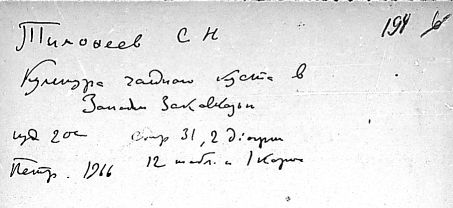 Тимофеев С Н 194
Культура чайного куста в
Западн Закавказьи
изд 2ое стр 31, 2 диагр
Петр. 1916 12 табл. и 1 карт